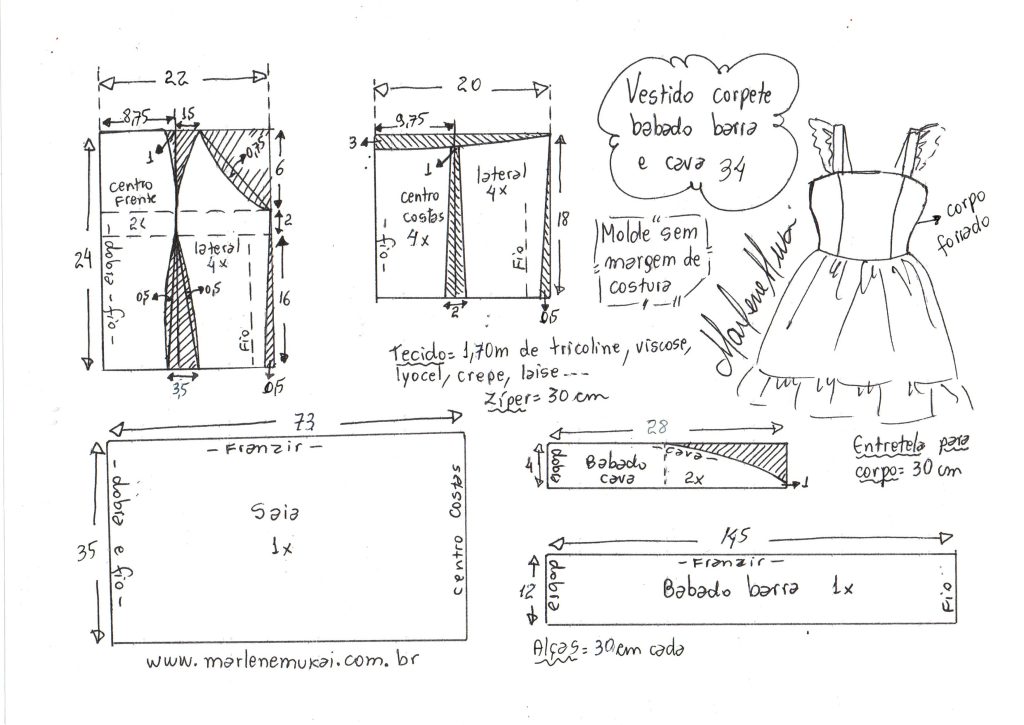 22
8,75
1,5
1
0,75
6
centro
Frente
2x
2
24
- dobra - fio -
lateral
4x
0,5
0,5
16
Fio
3,5
0,5
20
9,75
3
1
lateral
4x
centro
costas
4x
- fio -
Fio
18
2
0,5
Vestido corpete
babado barra
e cava 34
Molde sem
margem de
costura
Marlene Mukai
corpo
forrado
Tecido= 1,70m de tricoline, viscose,
lyocel, crepe, laise ---
Zíper= 30 cm
73
- Franzir -
35
- dobra e fio -
Saia
1x
centro costas
www.marlenemukai.com.br
28
4
dobra
Babado
cava
- cava -
2x
1
Entretela para
corpo= 30 cm
145
- Franzir -
12
dobra
Babado barra 1x
Fio
Alças= 30 cm cada